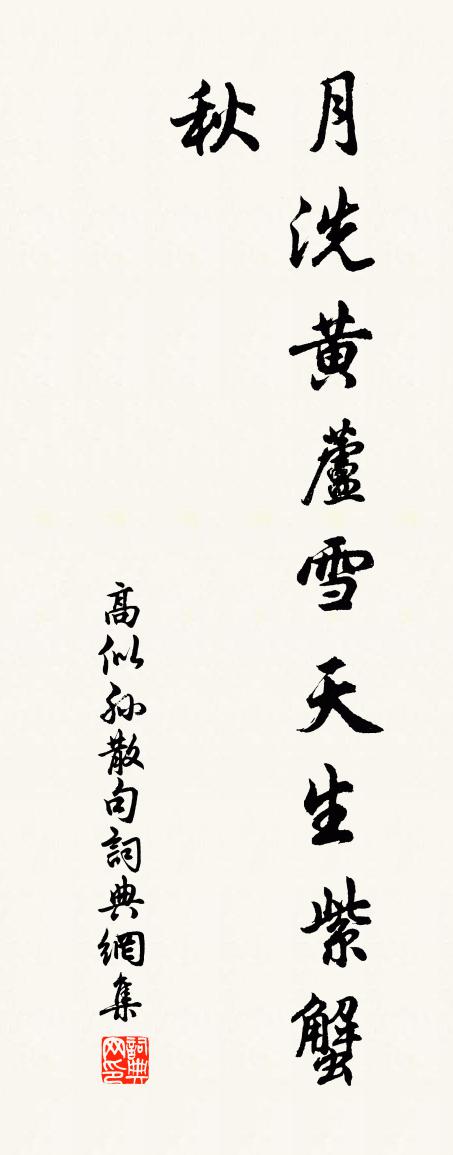 月洗黃蘆雪天生紫蟹
秋
高似孫散句詞典網集
詞典网印